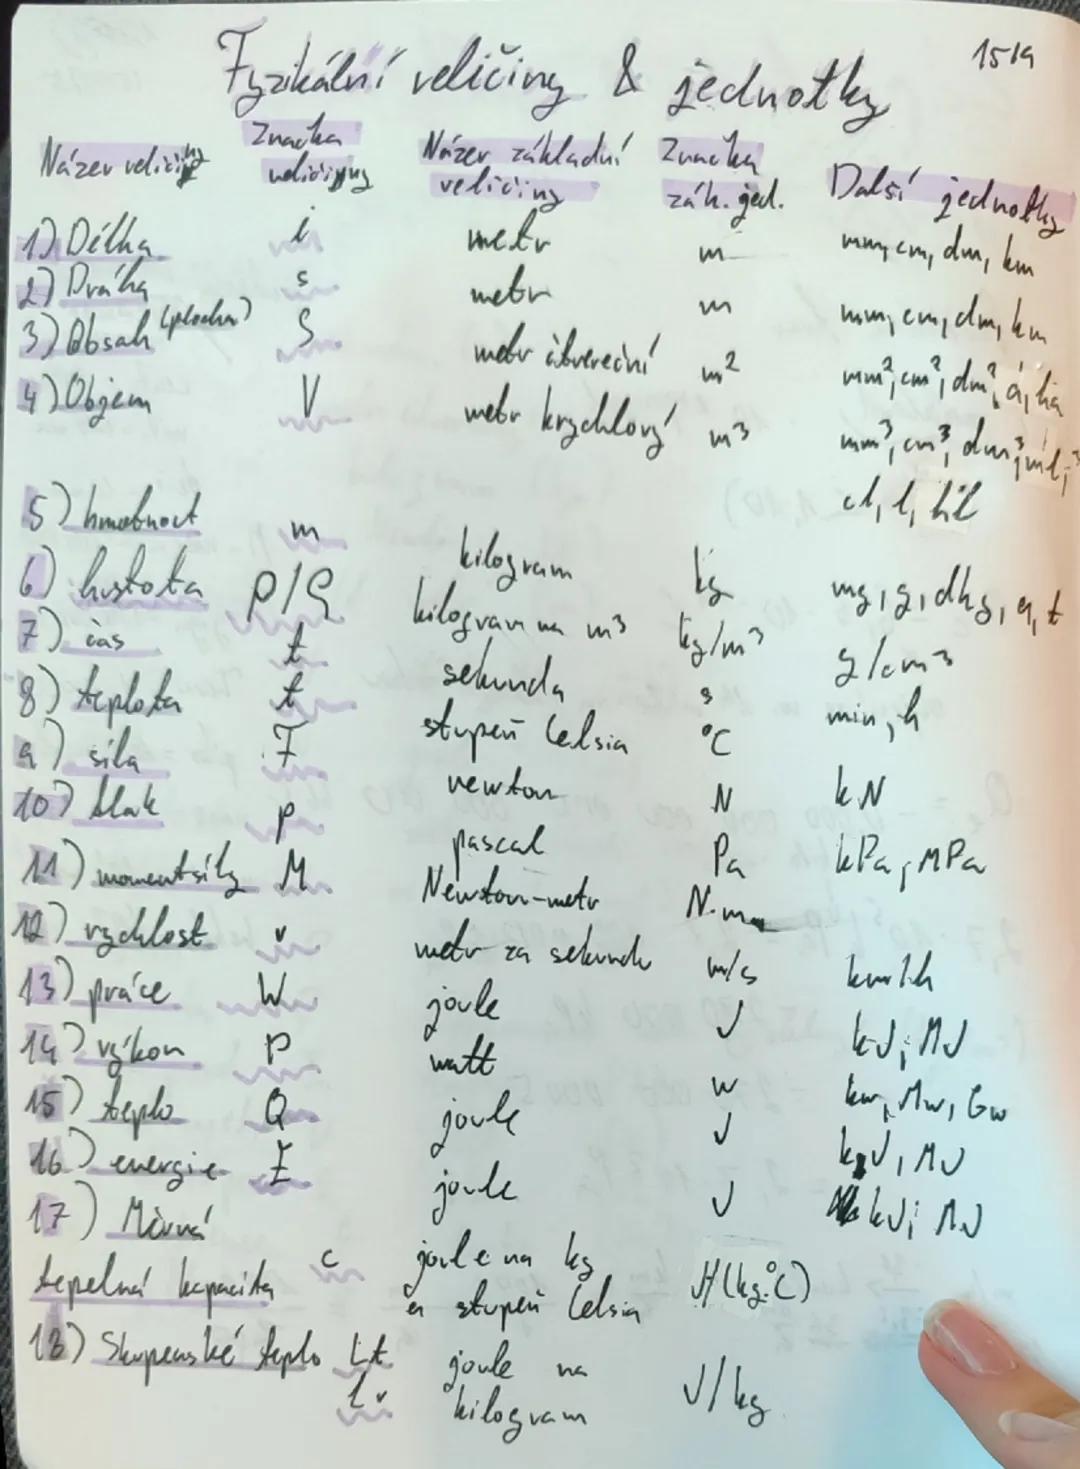 15/9
Fyzikální veličiny & jednotky
Název veličiny Značka veličiny Název základní veličiny Značka zák. jed. Další jednotky
1) Délka i metr m mm, cm, dm, km
2) Dráha s metr m mm, cm, dm, km
3) Obsah (plocha) S metr čtvereční m² mm², cm², dm², á, ha
4) Objem V metr krychlový m³ mm³, cm³, dm³, ml,
cl, l, hl
5) hmotnost m kilogram kg mg, g, dkg, q, t
6) hustota ρ/ϱ kilogram na m³ kg/m³ g/cm³
7) čas t sekunda s min, h
8) teplota t stupeň Celsia °C
9) síla F newton N kN
10) tlak p pascal Pa kPa, MPa
11) moment síly M Newton-metr N·m
12) rychlost v metr za sekundu m/s km/h
13) práce W joule J kJ, MJ
14) výkon P watt W kW, MW, GW
15) teplo Q joule J kJ, MJ
16) energie E joule J kJ, MJ
17) Měrná
tepelná kapacita c joule na kg a stupeň Celsia J/(kg·°C)
18) Skupenské teplo Lt joule na J/kg
lv kilogram